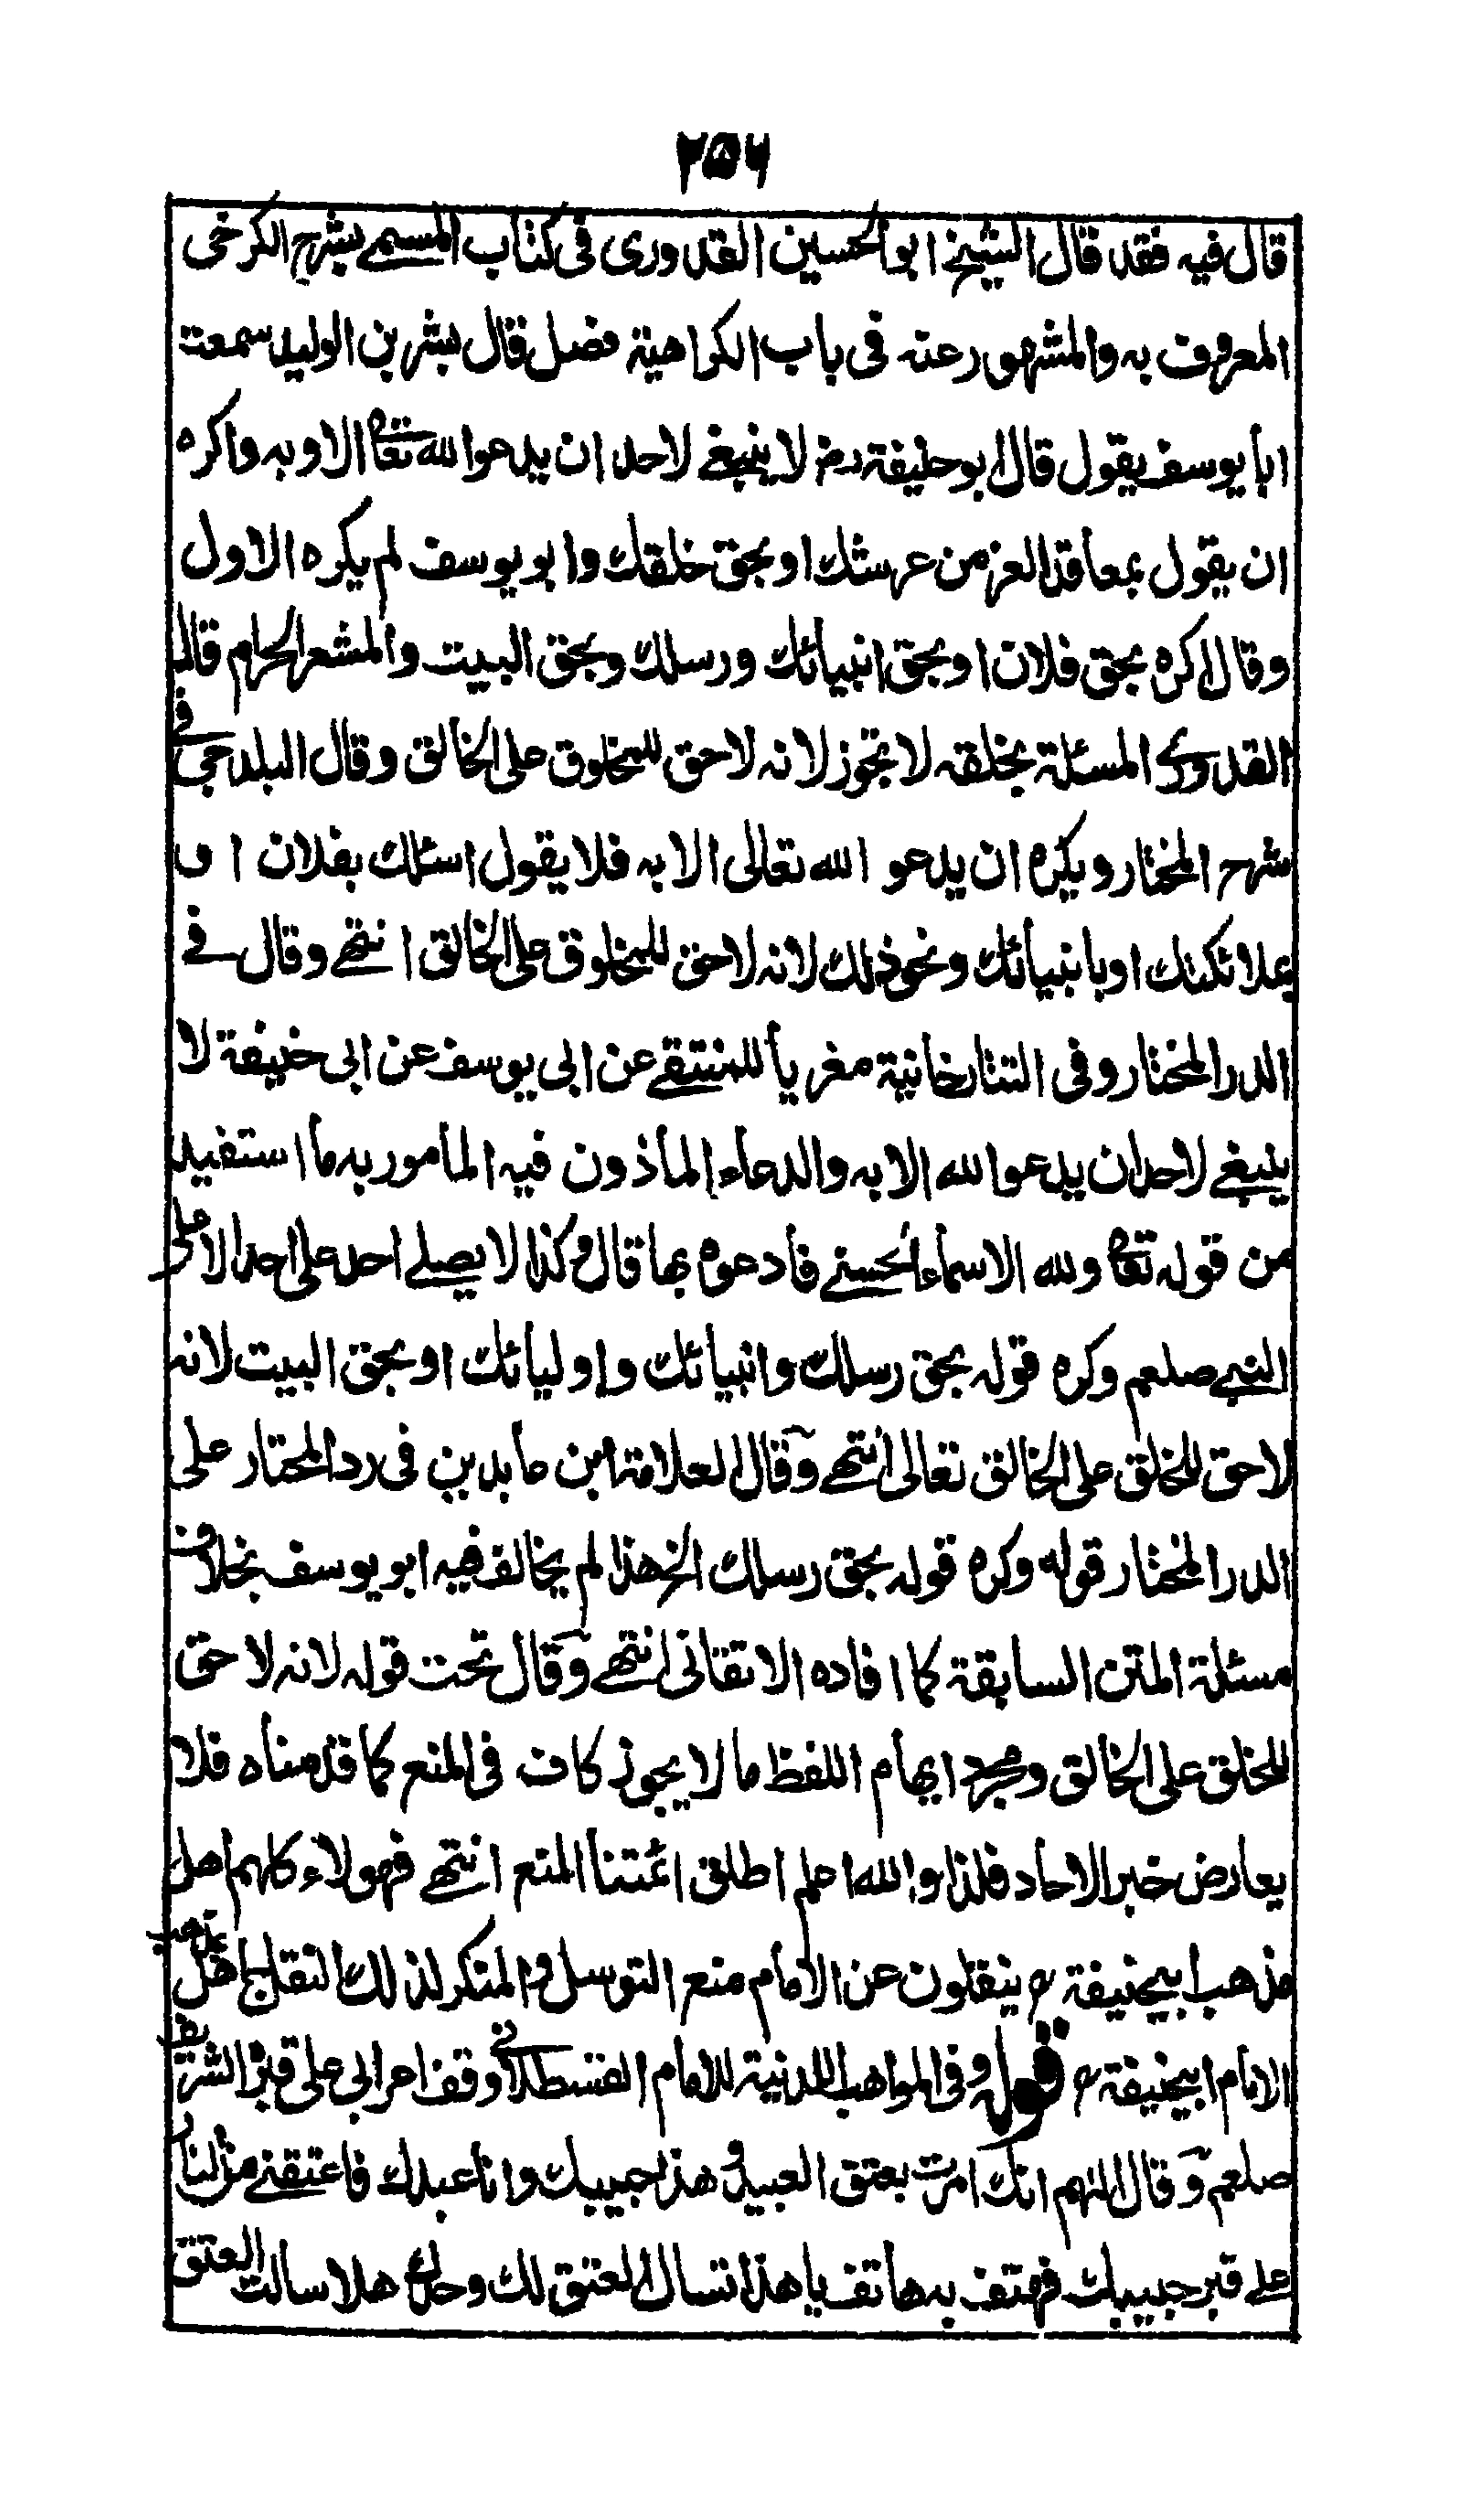 ٢٥٦
قال فيه فقد قال الشيخ ابو الحسين القدورى فى كتاب المسمى بشرح الكرخى
المعروف به والمشهور عنه فى باب الكراهية فصل قال بشر بن الوليد سمعت
ابا يوسف يقول قال ابو حنيفة رح لا ينبغى لاحد ان يدعو الله تعا الا به واكره
ان يقول بمعاقد العز من عرشك او بحق خلقك وابو يوسف لم يكره الاول
وقال اكره بحق فلان او بحق انبيائك ورسلك وبحق البيت والمشعر الحرام قال
القدورى المسئلة بخلقه لا تجوز لانه لا حق للمخلوق على الخالق وقال البلدجى فى
شرح المختار ويكره ان يدعو الله تعالى الا به فلا يقول اسئلك بفلان او
بملائكتك او بانبيائك ونحو ذلك لانه لا حق للمخلوق على الخالق انتهى وقال فى
الدر المختار وفى التتارخانية مغريا للمنتقى عن ابى يوسف عن ابى حنيفة لا
ينبغى لاحد ان يدعو الله الا به والدعاء الماذون فيه المامور به ما استفيد
من قوله تعا ولله الاسماء الحسنى فادعوه بها قال وكذا لا يصلى احد على احد الا على
النبى صلعم وكره قوله بحق رسلك وانبيائك واوليائك او بحق البيت لانه
لا حق للخلق على الخالق تعالى انتهى وقال العلامة ابن عابدين فى رد المحتار على
الدر المختار قوله وكره قوله بحق رسلك الخ هذا لم يخالف فيه ابو يوسف بخلاف
مسئلة المتن السابقة كما افاده الاتقانى انتهى وقال تحت قوله لانه لا حق
للخلق على الخالق ومجرد ايهام اللفظ ما لا يجوز كاف فى المنع كما قدمناه فلا
يعارض خبر الاحاد فلذا والله اعلم اطلق ائمتنا المنع انتهى فهولاء كلهم اهل
مذهب ابيحنيفة رح ينقلون عن الامام منع التوسل والمنكر لذلك النقل جاهل
الامام ابيحنيفة رح قوله وفى المواهب اللدنية للامام القسطلانى وقف اعرابى على قبره الشريف
صلعم وقال اللهم انك امرت بعتق العبيد وهذا حبيبك وانا عبدك فاعتقنى من النار
على قبر حبيبك فهتف به هاتف يا هذا تسال العتق لك وحدك هلا سالت العتق